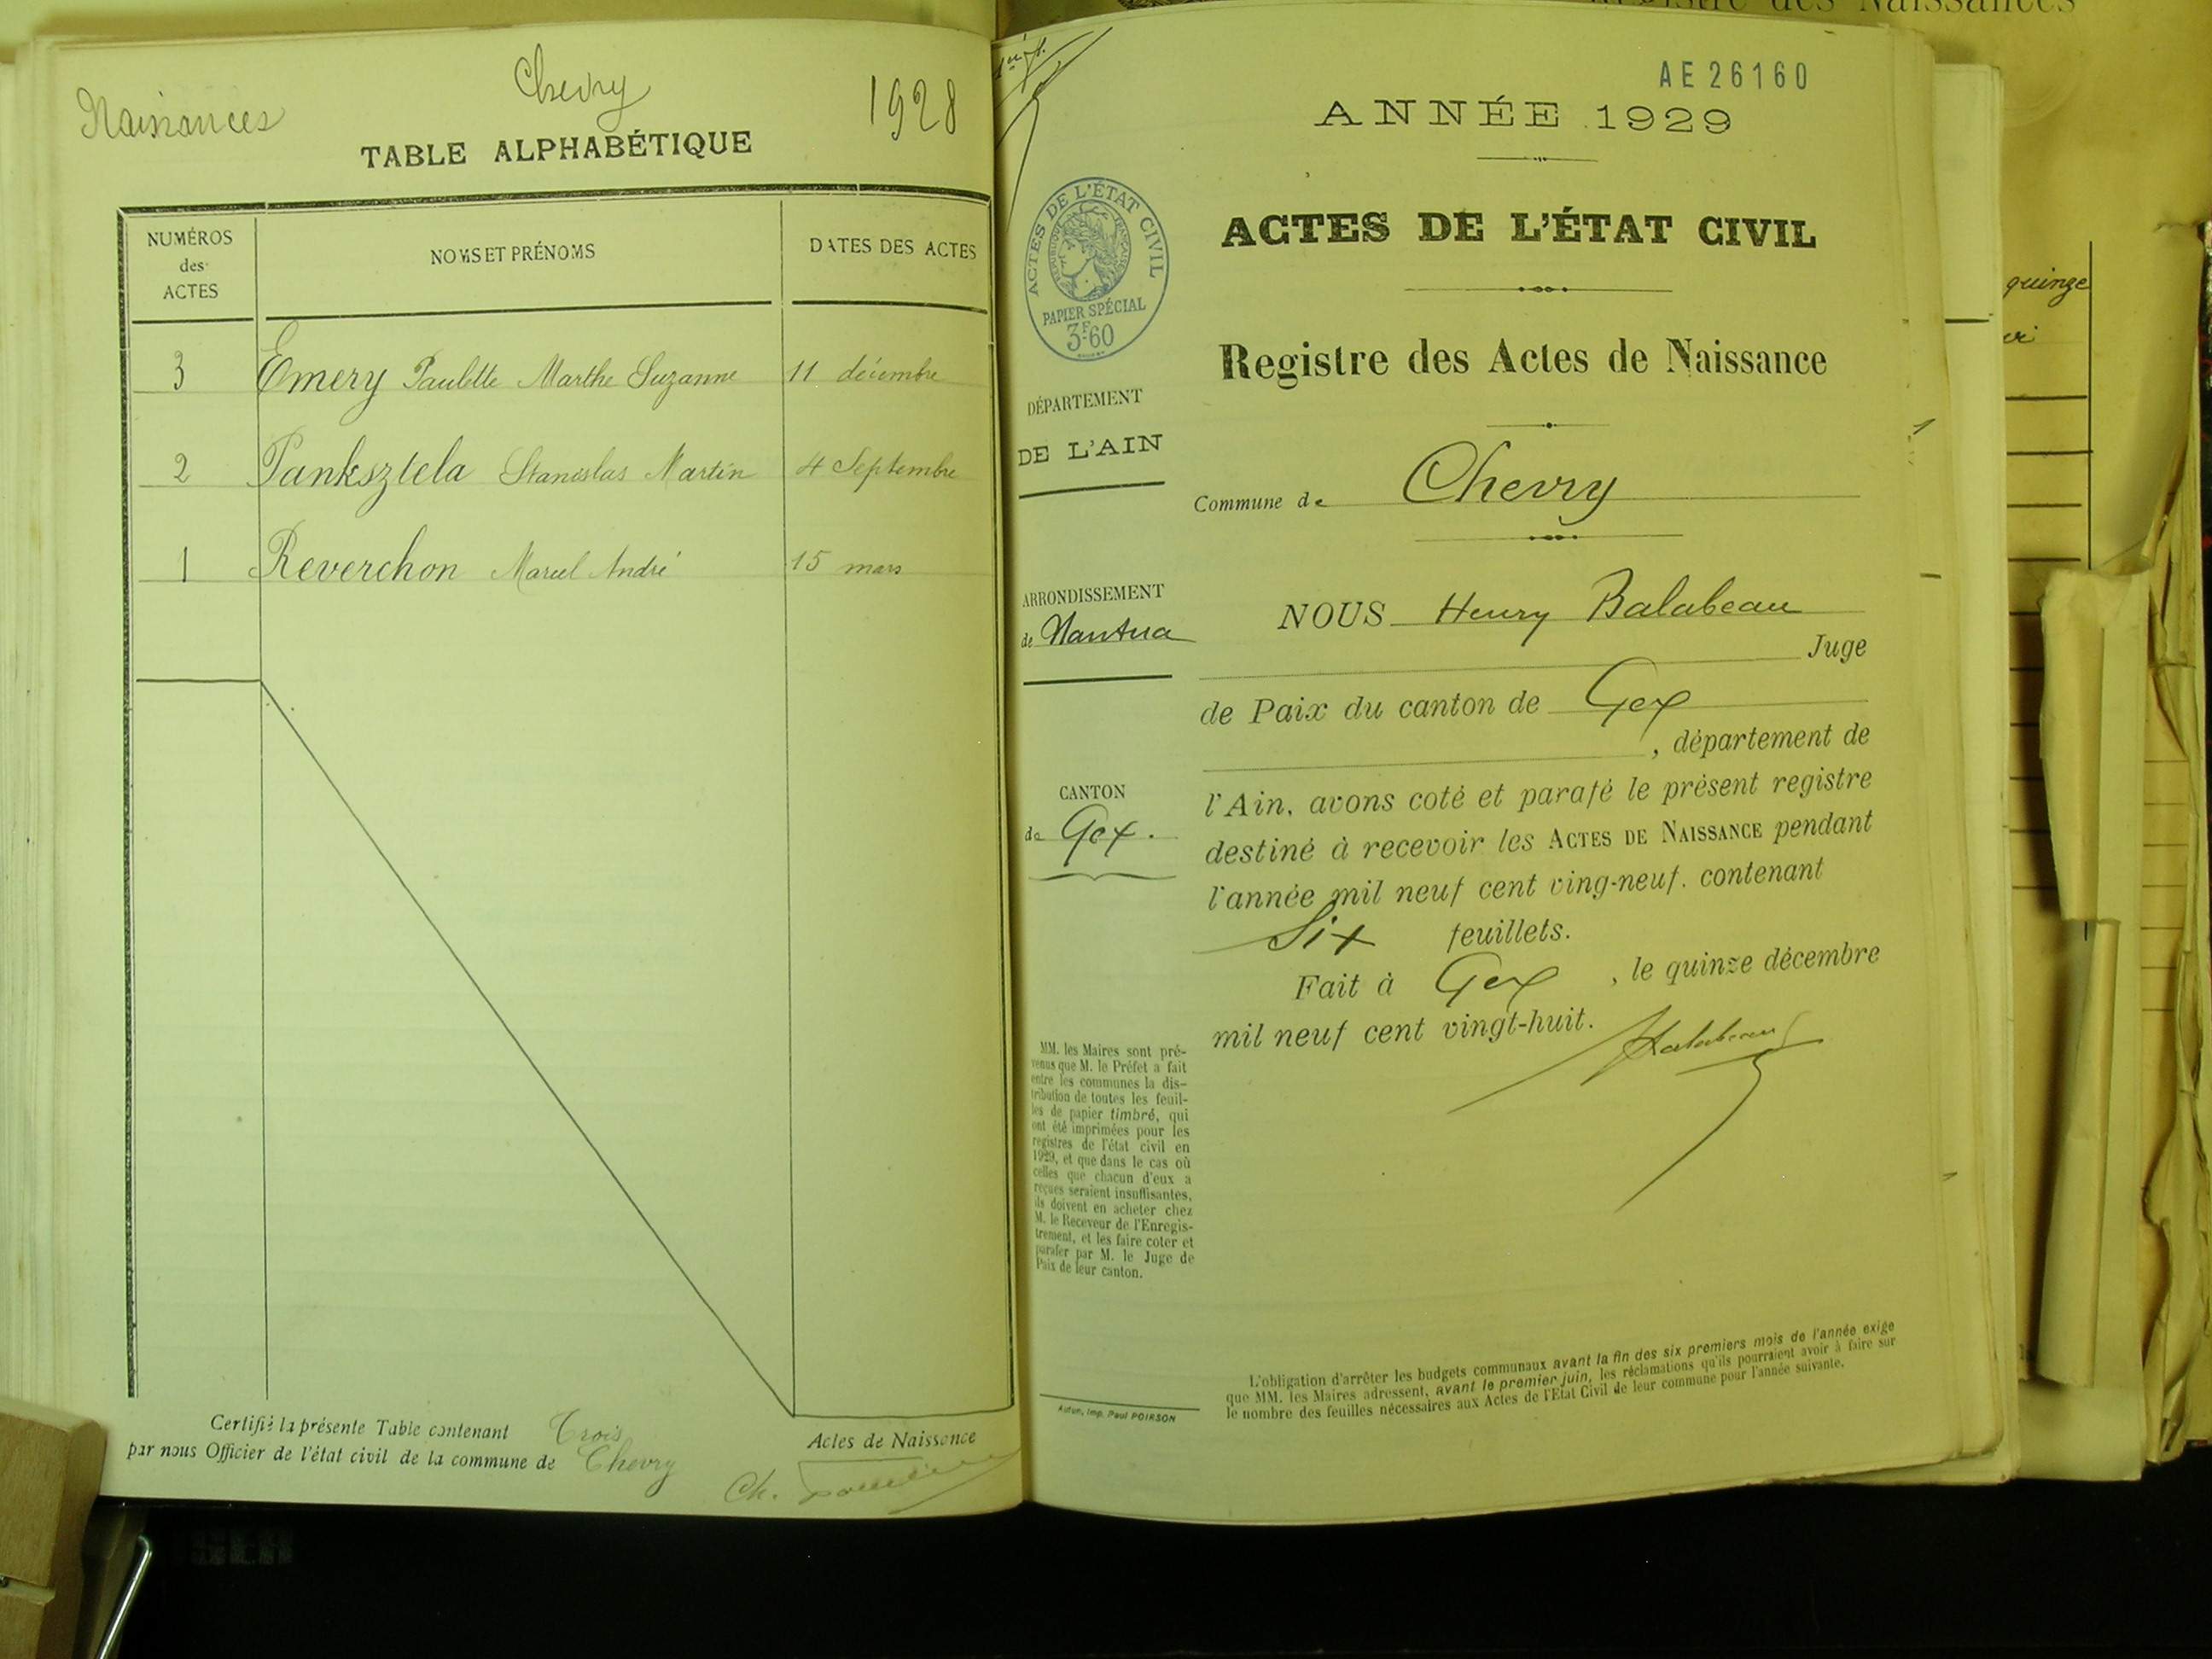 Naissances
Chevry
1928
TABLE ALPHABÉTIQUE
NUMÉROS
des
ACTES
NOMS ET PRÉNOMS
DATES DES ACTES
3 Emery Paulette Marthe Suzanne 11 décembre
2 Panksztela Stanislas Martin 4 Septembre
1 Reverchon Marcel André 15 mars
Certifié la présente Table contenant Trois
Actes de Naissance
par nous Officier de l'état civil de la commune de Chevry
Ch.
Registre des Naissances
AE 26160
ANNÉE 1929
ACTES DE L'ÉTAT CIVIL
RÉPUBLIQUE FRANÇAISE
PAPIER SPÉCIAL
3F60
ACTES DE L'ÉTAT CIVIL
Registre des Actes de Naissance
DÉPARTEMENT
DE L'AIN
Commune de Chevry
ARRONDISSEMENT
de Nantua
NOUS Henry Balabeau
Juge
de Paix du canton de Gex
, département de
CANTON
de Gex.
l'Ain, avons coté et parafé le présent registre
destiné à recevoir les ACTES DE NAISSANCE pendant
l'année mil neuf cent ving-neuf. contenant
Six feuillets.
Fait à Gex, le quinze décembre
mil neuf cent vingt-huit.
Balabeau
MM. les Maires sont pré-
venus que M. le Préfet a fait
entre les communes la dis-
tribution de toutes les feuil-
les de papier timbré, qui
ont été imprimées pour les
registres de l'état civil en
1929, et que dans le cas où
celles que chacun d'eux a
reçues seraient insuffisantes,
ils doivent en acheter chez
M. le Receveur de l'Enregis-
trement, et les faire coter et
parafer par M. le Juge de
Paix de leur canton.
Autun, Imp. Paul POIRSON
L'obligation d'arrêter les budgets communaux avant la fin des six premiers mois de l'année exige
que MM. les Maires adressent, avant le premier juin, les réclamations qu'ils pourraient avoir à faire sur
le nombre des feuilles nécessaires aux Actes de l'Etat Civil de leur commune pour l'année suivante.
quinze